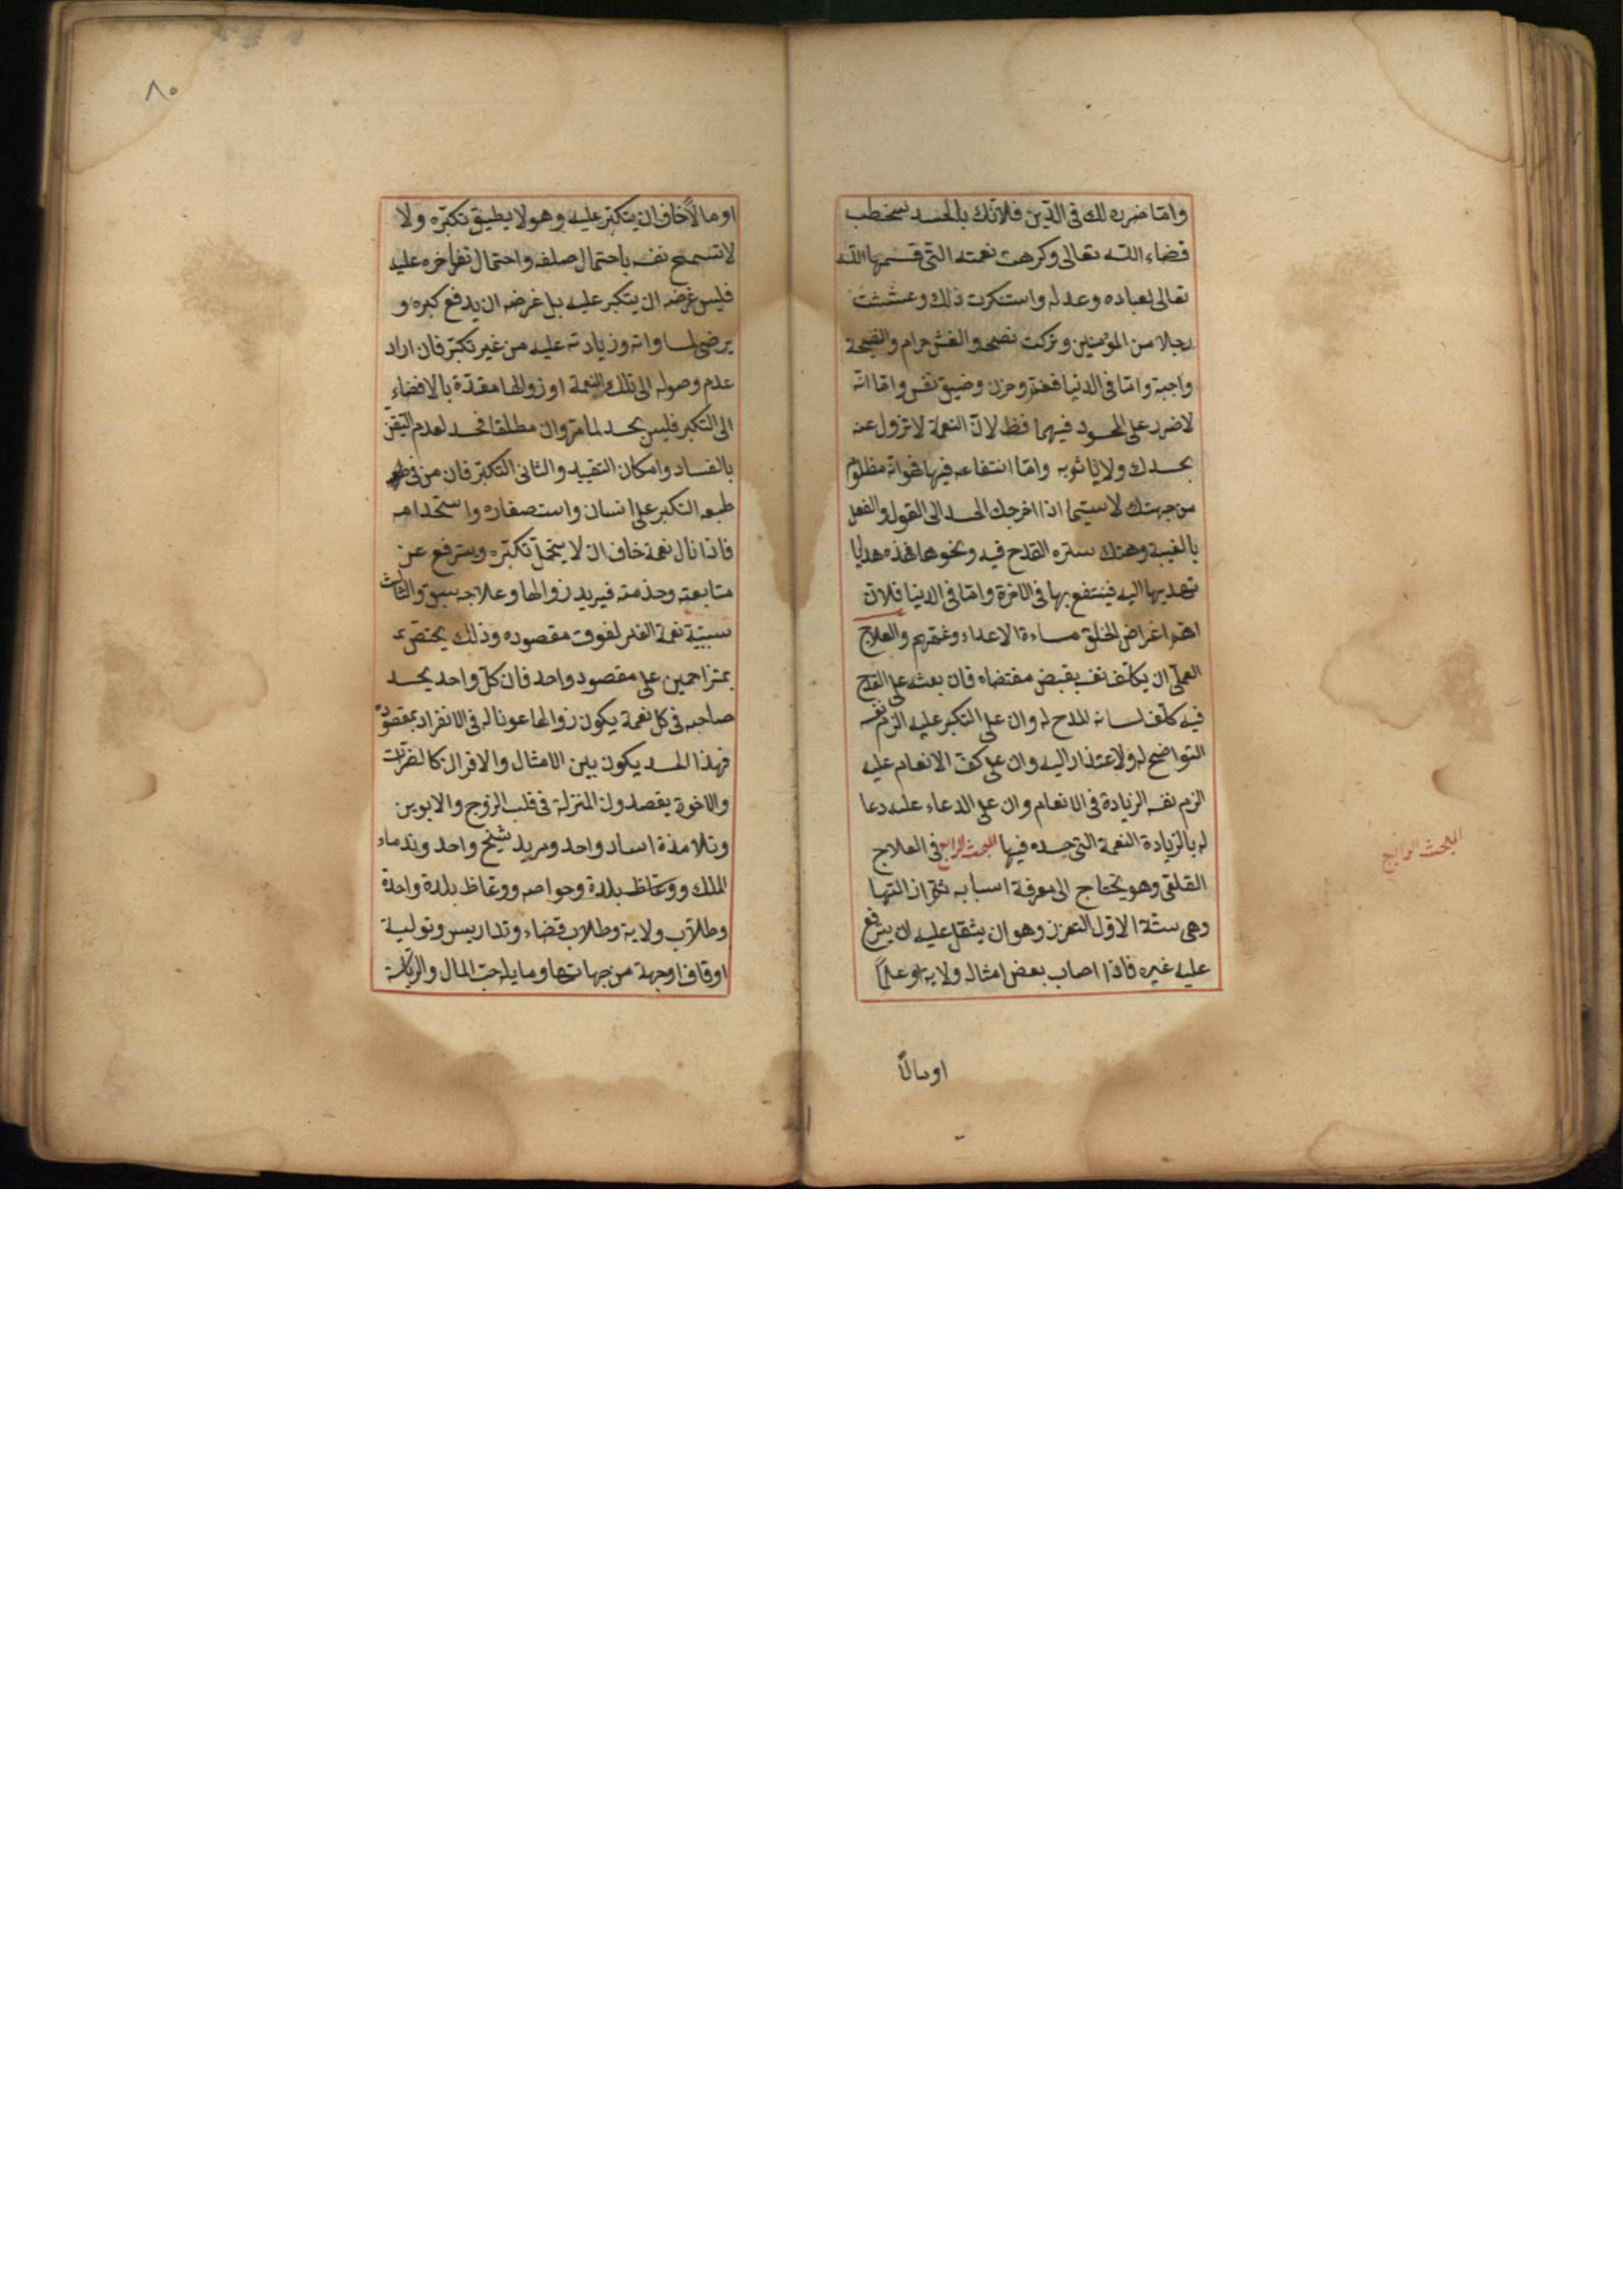 واما ضرره لك فى الدين فلانك بالحسد سخطت
قضاء الله تعالى وكرهت نعمته التى قسمها الله
تعالى لعباده وعدله واستنكرت ذلك وغششت
رجلا من المؤمنين وتركت نصحه والغش حرام والنصيحة
واجبة واما فى الدنيا فغم وحزن وضيق نفس واما انه
لا ضرر على المحسود فيهما فظ لان النعمة لا تزول عنه
بحسدك ولا ياثم به واما انتفاعه فيها فهو انه مظلوم
من جهتك لا سيما اذا اخرجك الحسد الى القول والفعل
بالغيبة وهتك ستره القدح فيه ونحوها فهذه هدايا
تهديها اليه فينتفع بها فى الاخرة واما فى الدنيا فلان
اهم اغراض الخلق مساءة الاعداء وغمهم والعلاج
العملى ان يكلف نفسه بقيض مقتضاه فان بعثه على القدح
فيه كلف لسانه المدح له وان على التكبر عليه الزم نفسه
التواضع له ولاعتذار اليه وان على كف الانعام عليه
الزم نفسه الزيادة فى الانعام وان على الدعاء عليه دعا
له بالزيادة النعمة التى حسده فيها المبحث الرابع فى العلاج
القلقى وهو يحتاج الى معرفة اسبابه ثم ازالتها
وهى ستة الاول التعزز وهو ان يثقل عليه ان يترفع
عليه غيره فاذا اصاب بعض امثاله ولاية او علمًا
اومالًا
المبحث الرابع
٨٠
اومالًا خاف ان يتكبر عليه وهو لا يطيق تكبره ولا
لا تسمح نفسه باحتمال صلفه واحتمال تفاخره عليه
فليس غرضه ان يتكبر عليه بل غرضه ان يدفع كبره و
يرضى لمساواته وزيادته عليه من غير تكبر فان اراد
عدم وصوله الى تلك النعمة او زوالها مقيدة بالافضاء
الى التكبر فليس بحسد لما مر وان مطلقا فحسد لعدم التيقن
بالفساد وامكان التقييد والثانى التكبر فان من فى
طبعه التكبر على انسان واستصغاره واستخدامه
فاذا نال نعمة خاف ان لا يتحمل تكبره ويترفع عن
متابعته وخدمته فيريد زوالها وعلاجه سبق والثالث
سببية نعمة الغير لفوت مقصوده وذلك يختص
بمتزاحمين على مقصود واحد فان كل واحد يحسد
صاحبه فى كل نعمة يكون زوالها عونا له فى الانفراد بمقصوده
فهذا الحسد يكون بين الامثال والاقران كالضرات
والاخوة يقصدون المنزلة فى قلب الزوج والابوين
وتلامذة استاد واحد ومريد شيخ واحد وندماء
الملك ووعاظ بلدة وخواصه ووعاظ بلدة واحدة
وطلاب ولاية وطلاب قضاء وتدريس وتولية
اوقاف اوجهة من جهاتها ومايله حب المال والرياسة